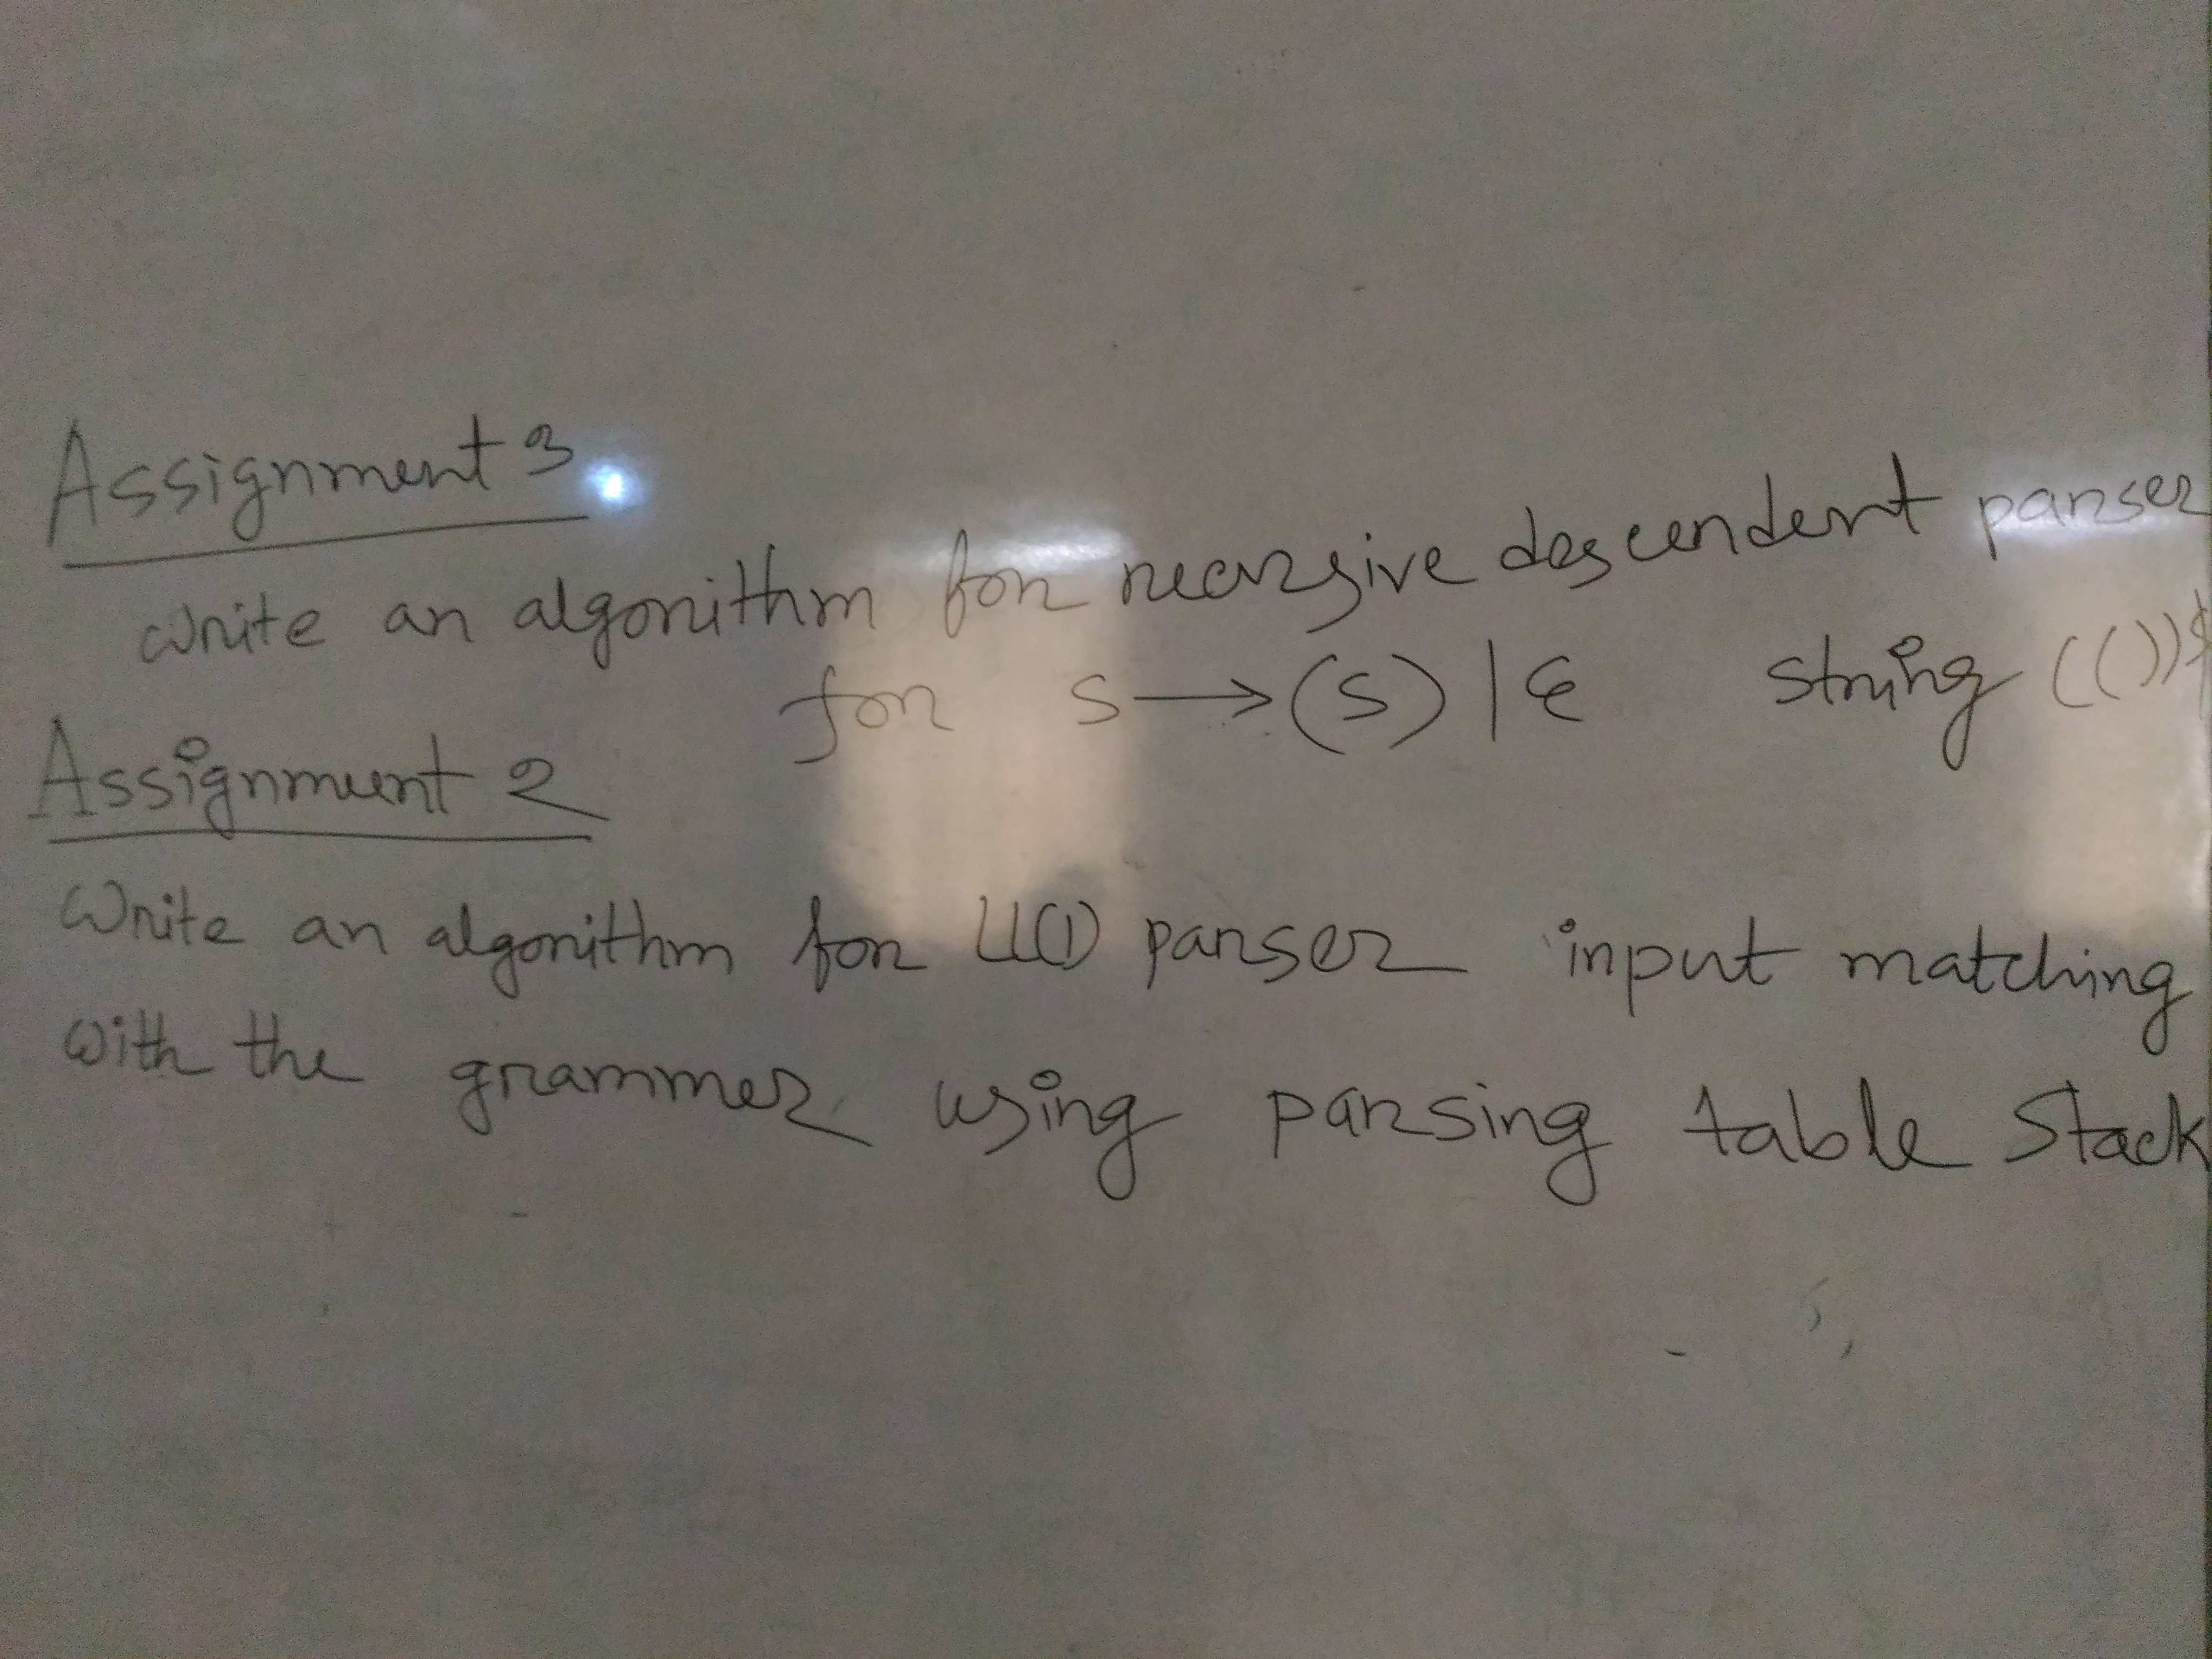 Assignment 3
Write an algorithm for recursive descendent parser
for S → (S) | ε string (())$
Assignment 2
Write an algorithm for LL(1) parser input matching
with the grammer using parsing table stack